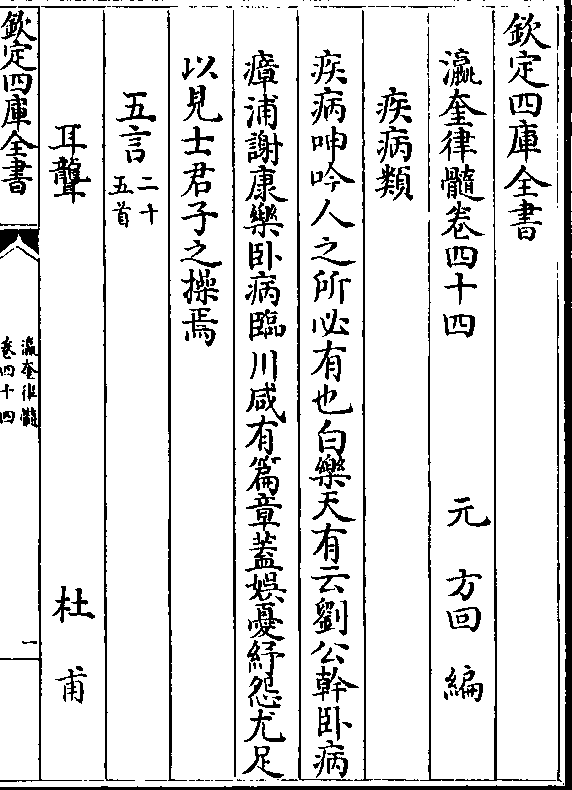 欽定四庫全書
瀛奎律髓卷四十四
元 方回 編
疾病類
疾病呻吟人之所必有也白樂天有云劉公幹卧病
瘴浦謝康樂卧病臨川咸有篇章蓋娯憂紓怨尤足
以見士君子之操焉
五言 二十五首
耳聾
杜甫
欽定四庫全書
瀛奎律髓
卷四十四
一